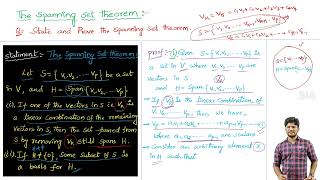 The Spanning Set theorem:-
Q: State and Prove the Spanning Set theorem
statement:- The Spanning Set theorem:
Let S = {v₁, v₂, ... vₚ} be a set
in V, and H = Span{v₁, v₂, ... vₚ}
(i). If one of the vectors in S i.e. vₖ is
a linear combination of the remaining
vectors in S, then the set formed from
S by removing vₖ still spans H.
(ii). If H ≠ {0}, Some subset of S is
a basis for H.
proof:- (i) Given S = {v₁, v₂, ... vₚ} is
a set in V where v₁, v₂, ... vₚ are
vectors in S
and H = Span{v₁, v₂, ... vₚ}
is the linear combination of
then we have
where a₁, a₂, ... are scalars.
• Consider an arbitrary element x
in H such that